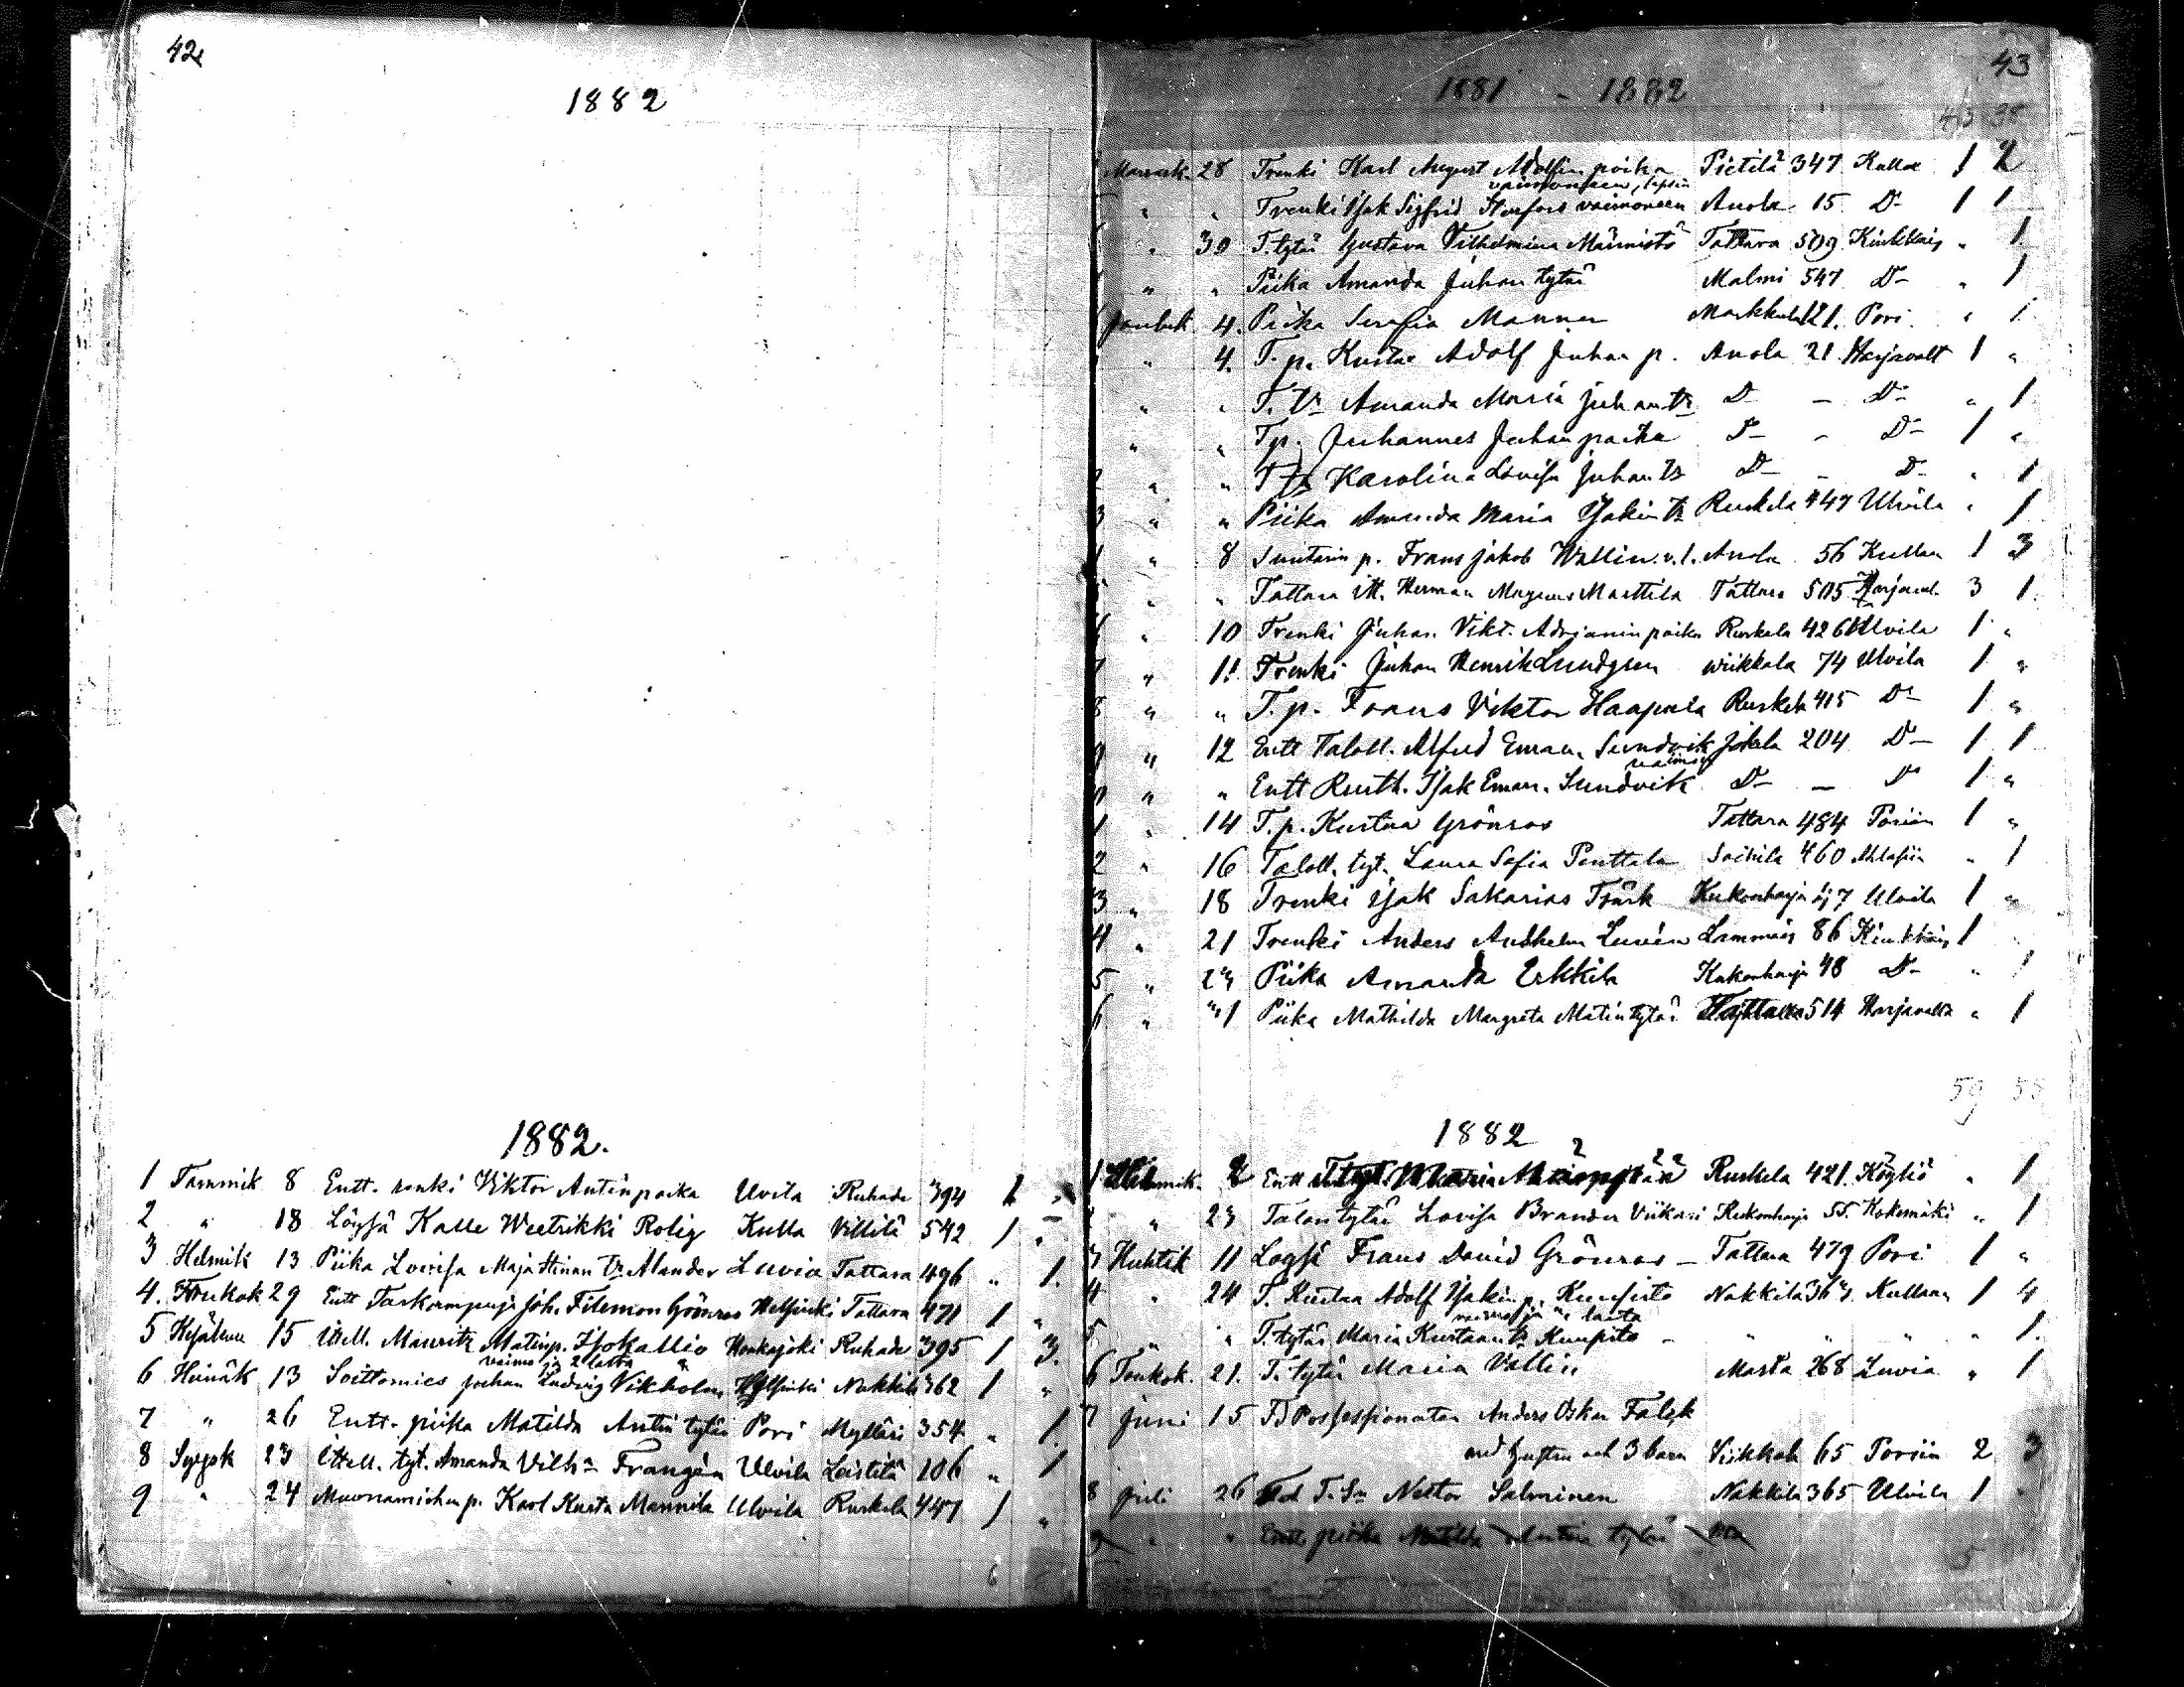 42
1882
1882.
1 Tammik 8 Entt. renki Viktor Antinpoika Ulvila Ruhade 394 1 "
2 " 18 Löysä Kalle Weetrikki Rolig Kulla Villilä 542 1 "
3 Helmik 13 Piika Lovisa Maja Stinan tr Alander Luvia Tattara 496 " 1.
4. Toukok 29 Entt Tarkampuja Joh. Filemon Grönroos Helsinki Tattara 471 1 "
5 Kesäkuu 15 Itsell. Mauritz Matinp. Isokallio Honkajoki Ruhade 395 1 3.
vaimo ja 2 lasta
6 Heinäk 13 Soittomies Johan Ludvig Vikholm Helsinki Nakkila 362 1 "
7 " 26 Entt. piika Matilda Antin tytär Pori Mylläri 354 " 1.
8 Syysk 23 Itsell. tyt. Amanda Vilh:a Frangén Ulvila Leistilä 106 " 1
9 " 24 Muonamiehen p. Karl Kusta Mannila Ulvila Ruskela 447 1 "
6
43
1881 - 1882
43 38
Marrask. 28 Trenki Karl August Adolfin poika Pietilä 347 Kullaa 1 2
vaimoneen, lapsin
" " Trenki Isak Sigfrid Stenfors vaimoneen Anola 15 Do 1 1
" 30 T. tytär Gustava Vilhelmina Männistö Tattara 509 Kiukkais " 1.
" " Piika Amanda Juhan tytär Malmi 547 Do " 1
Jouluk 4. Piika Serafia Manner Markkula 121. Pori " 1.
" 4. T. p. Kustaa Adolf Juhan p. Anola 21 Harjavalt 1 "
" " T. Vr Amanda Maria Juhan tr Do - Do " 1
" " T p. Juhannes Juhan poika Do - Do 1 "
2 " " T tr Karolina Lovisa Juhan tr Do - Do " 1
3 " " Piika Amanda Maria Isakin tr Ruskela 447 Ulvila " 1
" 8 Suutarin p. Frans Jakob Wallin v. l. Anola 56 Kullaa 1 3
" " Tattara itt. Herman Magnus Marttila Tattara 505 Harjaval. 3 1.
" 10 Trenki Juhan Vikt. Adrjanin poika Ruskela 426 Ulvila 1 "
7 " 11. Trenki Juhan Henrik Lundgren Wiikkala 74 Ulvila 1 "
8 " " T. p. Frans Viktor Haapala Ruskela 415 Do 1 "
9 " 12 Entt Taloll. Alfred Eman. Sundvik Jokela 204 Do 1 1
vaimo
0 " " Entt Rusth. Isak Eman. Sundvik Do - Do 1 "
1 " 14 T. p. Kustaa Grönroos Tattara 484 Poriin 1 "
2 " 16 Taloll. tyt. Laura Sofia Penttala Soinila 460 Ahlaisiin " 1
3 " 18 Trenki Isak Sakarias Träsk Kukonharja 47 Ulvila 1 "
4 " 21 Trenki Anders Anshelm Lunén Lammais 86 Kiukkais 1 "
5 " 23 Piika Amanda Erkkila Kukonharja 48 Do " 1
6 " 31 Piika Mathilda Margreta Matin tytär Tattara 514 Harjavalta " 1
59 55
1882
1 Helmik. 2 Entt Ruskela 421. Köyliö " 1
" 23 Talon tytär Lovisa Brander Viikari Kukonharja 55. Kokemäki " 1
3 Huhtik 11 Loysä Frans David Grönroos - Tattara 479 Pori 1 "
4 " 24 T. Kustaa Adolf Isakin p. Kuusisto Nakkila 363 Kullaan 1 4
vaimo ja 4 lasta
5. " " T. tytär Maria Kustaan tr Kuusisto - " " " " 1.
6 Toukok. 21. T. tytär Maria Vallin Masia 268 Luvia " 1
7 Juni 15 Possessionaten Anders Oskar Falck
med hustru och 3 barn Viikkala 65 Poriin 2 3
8 Juli 26 T. Sn Nestor Salminen Nakkila 365 Ulvila 1 "
9 " " Entt piika Matilda Antin tytär
5